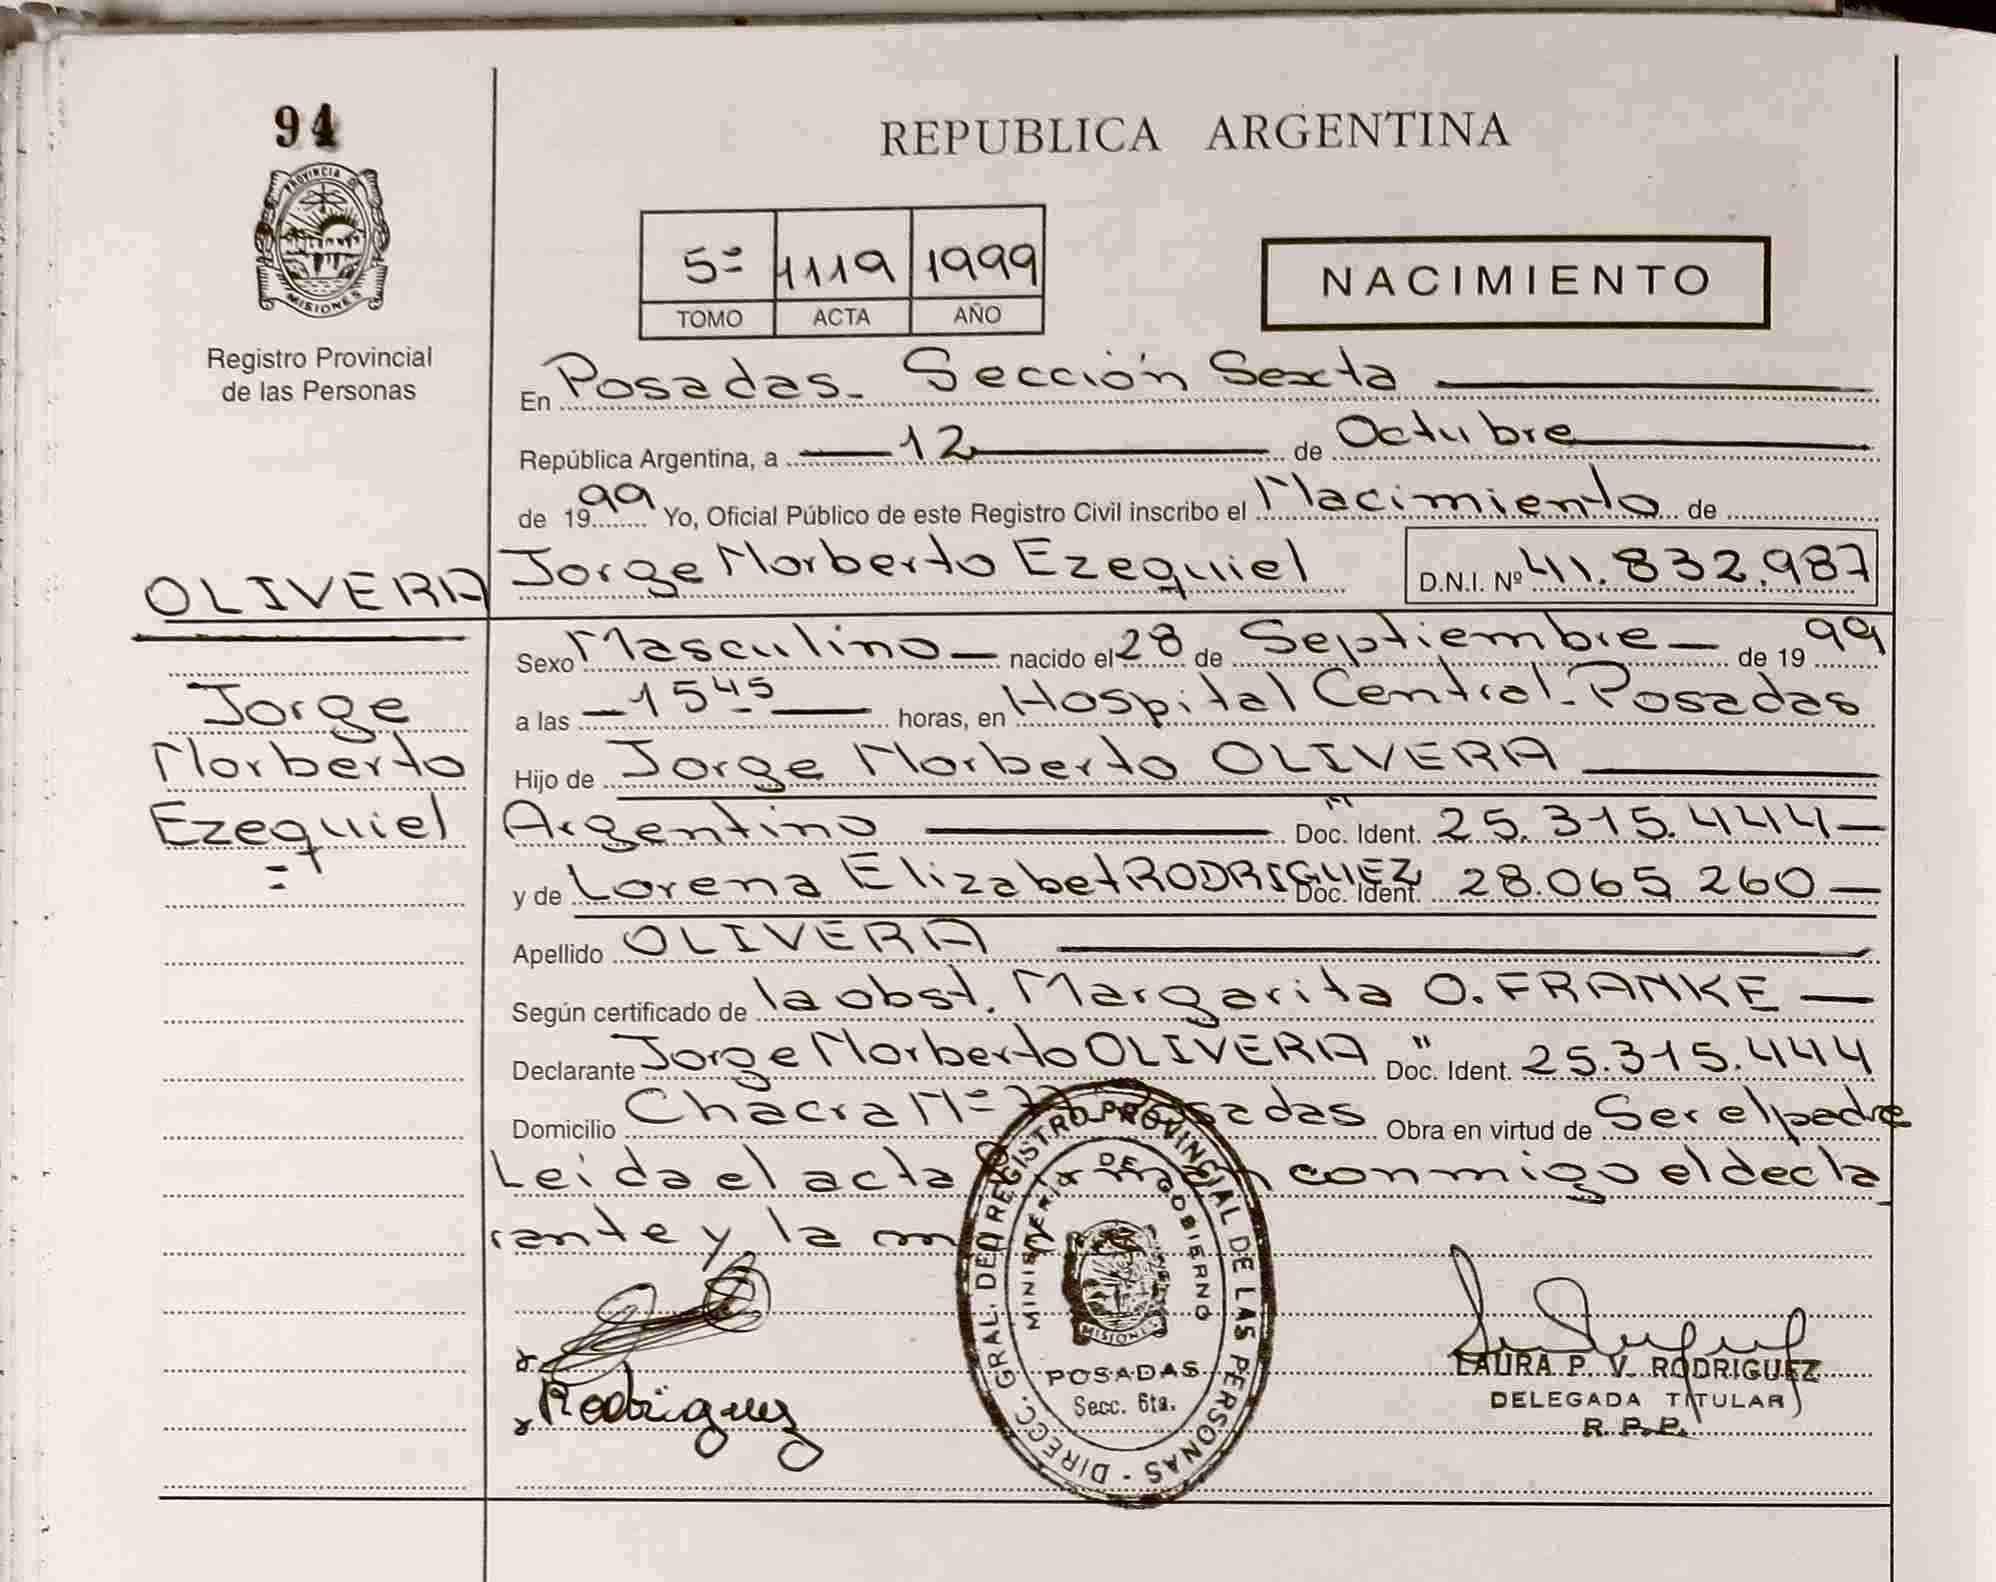 94
PROVINCIA DE
MISIONES
Registro Provincial
de las Personas
REPUBLICA ARGENTINA
5º 1119 1999
TOMO ACTA AÑO
NACIMIENTO
En Posadas_ Sección Sexta
República Argentina, a 12 de Octubre
de 1999 Yo, Oficial Público de este Registro Civil inscribo el Nacimiento de
OLIVERA Jorge Norberto Ezequiel D.N.I. Nº 41.832.987
Sexo Masculino nacido el 28 de Septiembre de 1999
Jorge
a las 15 45 horas, en Hospital Central_Posadas
Norberto
Hijo de Jorge Norberto OLIVERA
Ezequiel
Argentino Doc. Ident. 25.315.444
y de Lorena Elizabet RODRIGUEZ Doc. Ident. 28.065 260
Apellido OLIVERA
Según certificado de la obst. Margarita O. FRANKE
Declarante Jorge Norberto OLIVERA Doc. Ident. 25.315.444
Domicilio Chacra Nº Posadas Obra en virtud de Ser el padre
Leida el acta conmigo el decla
rante y la
DIRECC. GRAL. DEL REGISTRO PROVINCIAL DE LAS PERSONAS
MINISTERIO DE GOBIERNO
MISIONES
POSADAS
Secc. 6ta.
Rodriguez
LAURA P. V. RODRIGUEZ
DELEGADA TITULAR
R. P. P.